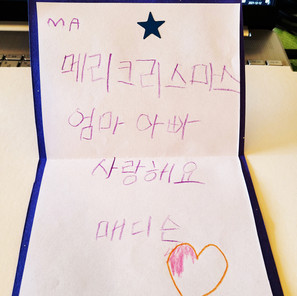 MA
메리크리스마스
엄마 아빠
사랑해요
매디슨